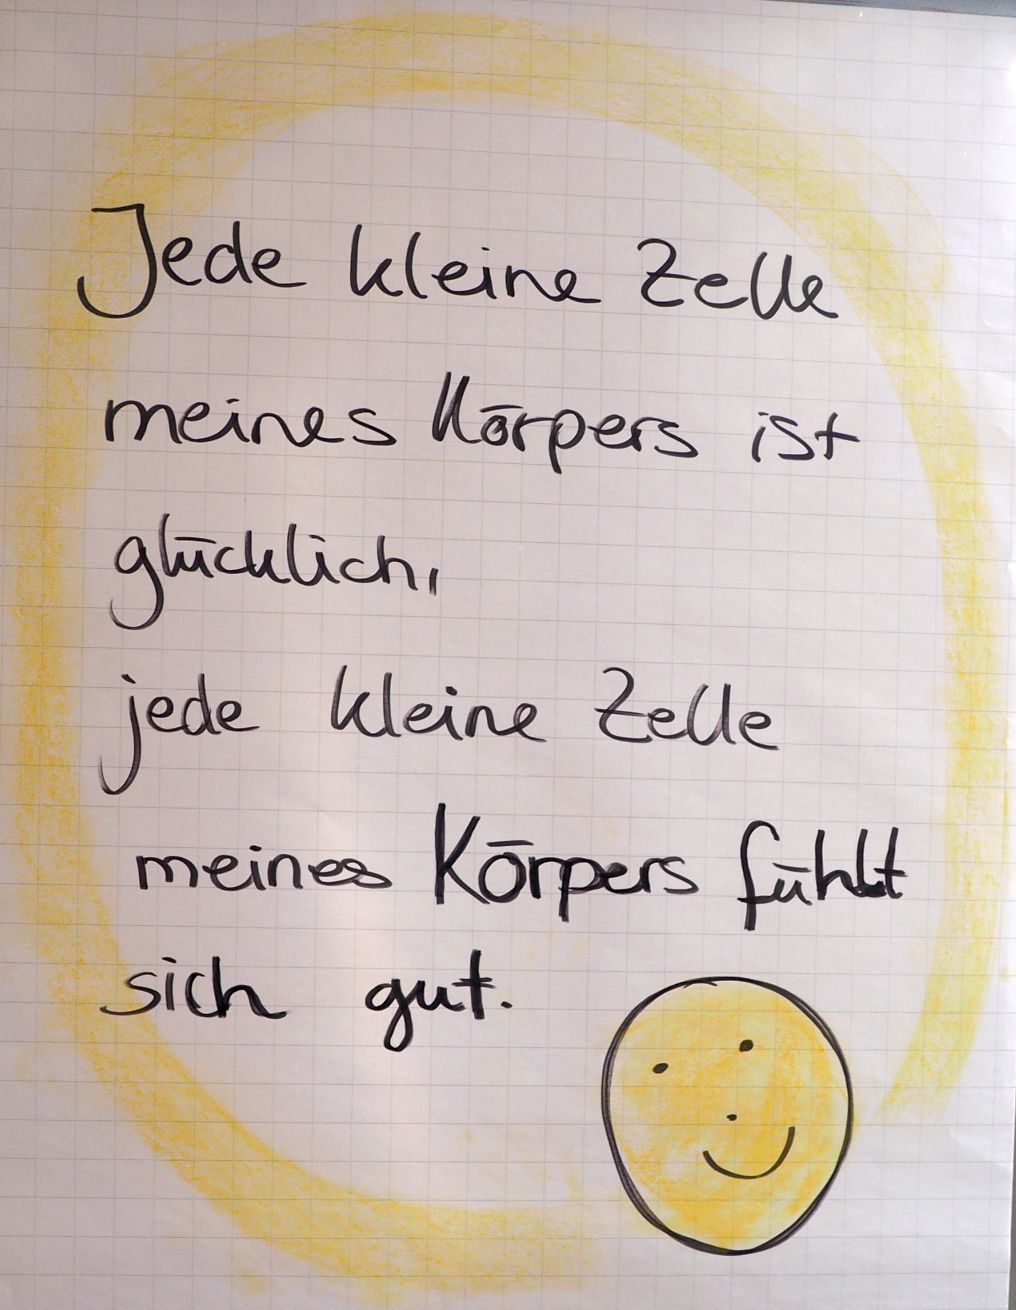 Jede kleine Zelle
meines Körpers ist
glücklich,
jede kleine Zelle
meines Körpers fühlt
sich gut.